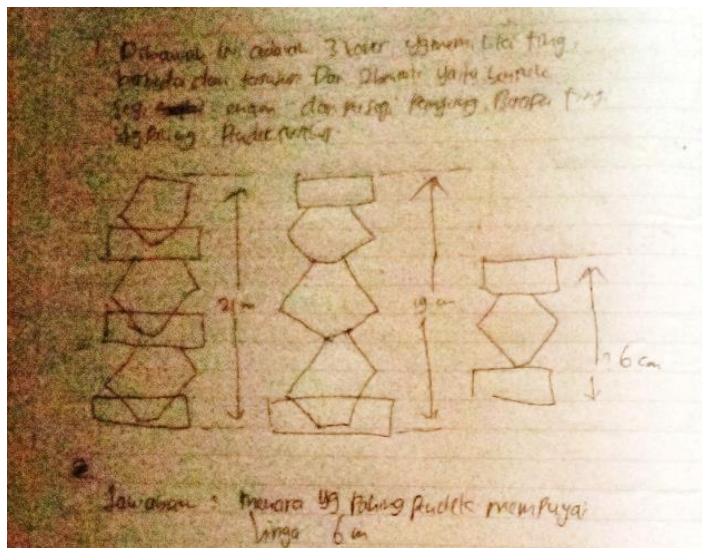 Dibawah ini adalah 3 tower yg memiliki ting
berbeda dan Dar 2 bentuk yaitu bentuk
seg enam dan persegi Panjang. Berapa ting
yg paling Pndek
21 m
19 cm
? 6 cm
Jawaban : Menara yg Paling Pndek mempuyai
tinga 6 cm